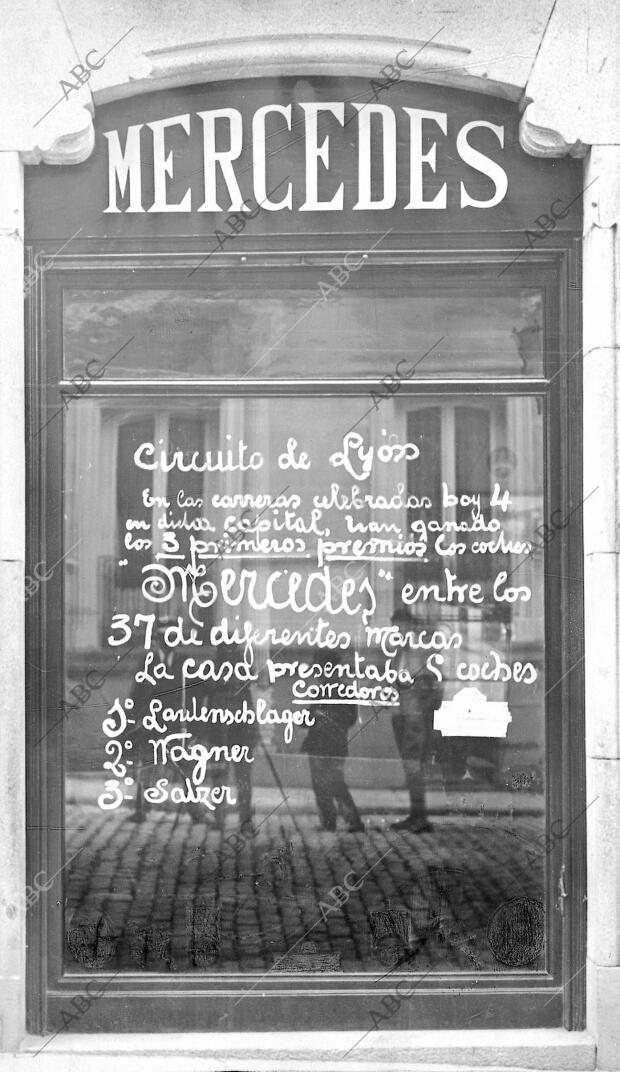 MERCEDES
Circuito de Lyóss
En las carreras celebradas hoy 4
en dicha capital, han ganado
los 3 primeros premios los coches
"Mercedes" entre los
37 de diferentes marcas
La casa presentaba 5 coches
Corredores
1º. Lautenschlager
2º. Wagner
3º. Salzer